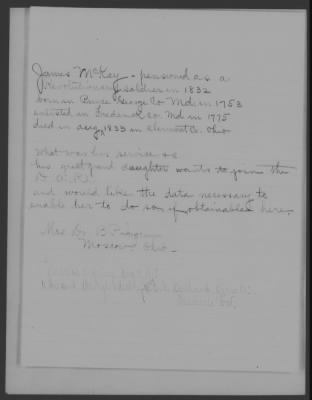 James McKay - pensioned as a
Revolutionary soldier in 1832
born in Prince George Co Md in 1753
enlisted in Frederick Co. Md in 1775
died in Aug, 1833 in Clermont Co. Ohio
What was his service as
his great grand daughter wants to join the
D. A. R.
and would like the data necessary to
enable her to do so if obtainable here.
Mrs Dr. B
Moscow Ohio